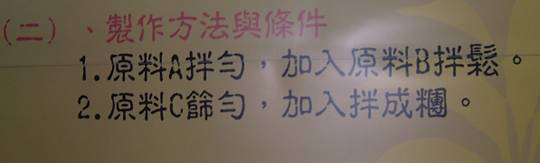 (二)、製作方法與條件
1.原料A拌勻，加入原料B拌鬆。
2.原料C篩勻，加入拌成糰。